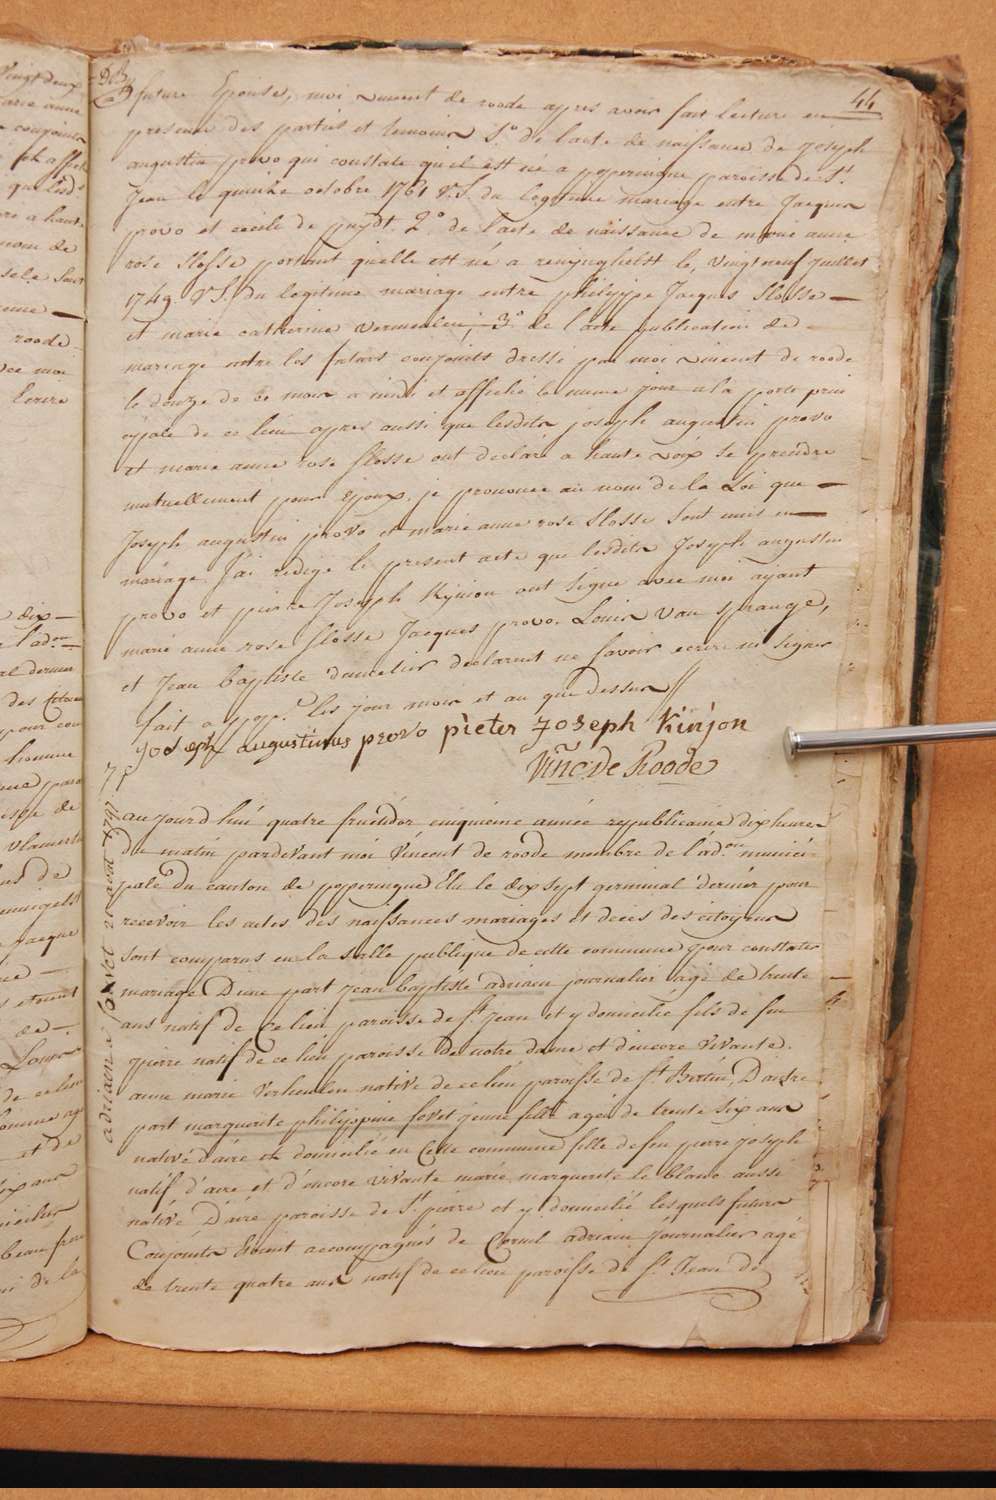 44
future Epouse, moi vincent de roode apres avoir fait lecture en
presence des parties et temoins 1.º de l'acte de naissance de joseph
augustin provo qui constate qu'il est né a poperingue paroisse de S.t
Jean le quinze octobre 1761 V.S. du legitime mariage entre Jacques
provo et cecile de puydt. 2.º de l'acte de naissance de marie anne
rose Slosse portant quelle est né a renynghelst le, vingt neuf juillet
1749. V.S. du legitime mariage entre philippe Jacques Slosse —
et marie catherine vermeulen; 3.º de l'acte publication de —
mariage entre les futurs conjoints dressé par moi vincent de roode
le douze de ce mois a midi et affiché le meme jour a la porte prin
cipale de ce lieu apres aussi que lesdits joseph augustin provo
et marie anne rose slosse ont declaré a haute voix se prendre
mutuellement pour Epoux, je prononce au nom de la Loi que —
Joseph augustin provo et marie anne rose Slosse sont unis en —
mariage. J'ai redigé le present acte que lesdits Joseph augustin
provo et pierre Joseph Kynion ont signe avec moi ayant
marie anne rose slosse Jacques provo. Louis van sprange,
et Jean baptiste dumelier declarent ne savoir ecrire ni signer
fait a pop.e les jour mois et an que dessus //
Joseph augustinus provo pieter Joseph Kinjon
Vinc: De Roode
adriaen & fovet 21 aout 1797
aujourd'hui quatre fructidor cinquieme année republicaine dix heures
du matin pardevant moi Vincent de roode membre de l'ad.on munici-
pale du canton de poperingue Elu le dix sept germinal dernier pour
recevoir les actes des naissances mariages et deces des citoyens
sont comparus en la salle publique de cette commune pour constater
mariage D'une part jean baptiste adriaen journalier agé de trente
ans natif de ce lieu paroisse de s.t Jean et y domicilie fils de feu
pierre natif de ce lieu paroisse de notre dame et d'encore vivante.
anne marie Verheulen native de ce lieu paroisse de s.t Bertin, D'autre
part marguerite philippine fovet jeune fille agée de trente six ans
native d'aire et domiciliée en Cette commune fille de feu pierre joseph
natif d'aire et d'encore vivante marie marguerite le blanc aussi
native D'aire paroisse de S.t pierre et y domicilié lesquels futurs
Conjoints Etoient accompagnés de Cornil adriaen journalier agé
de trente quatre ans natif de ce lieu paroisse de s.t Jean de